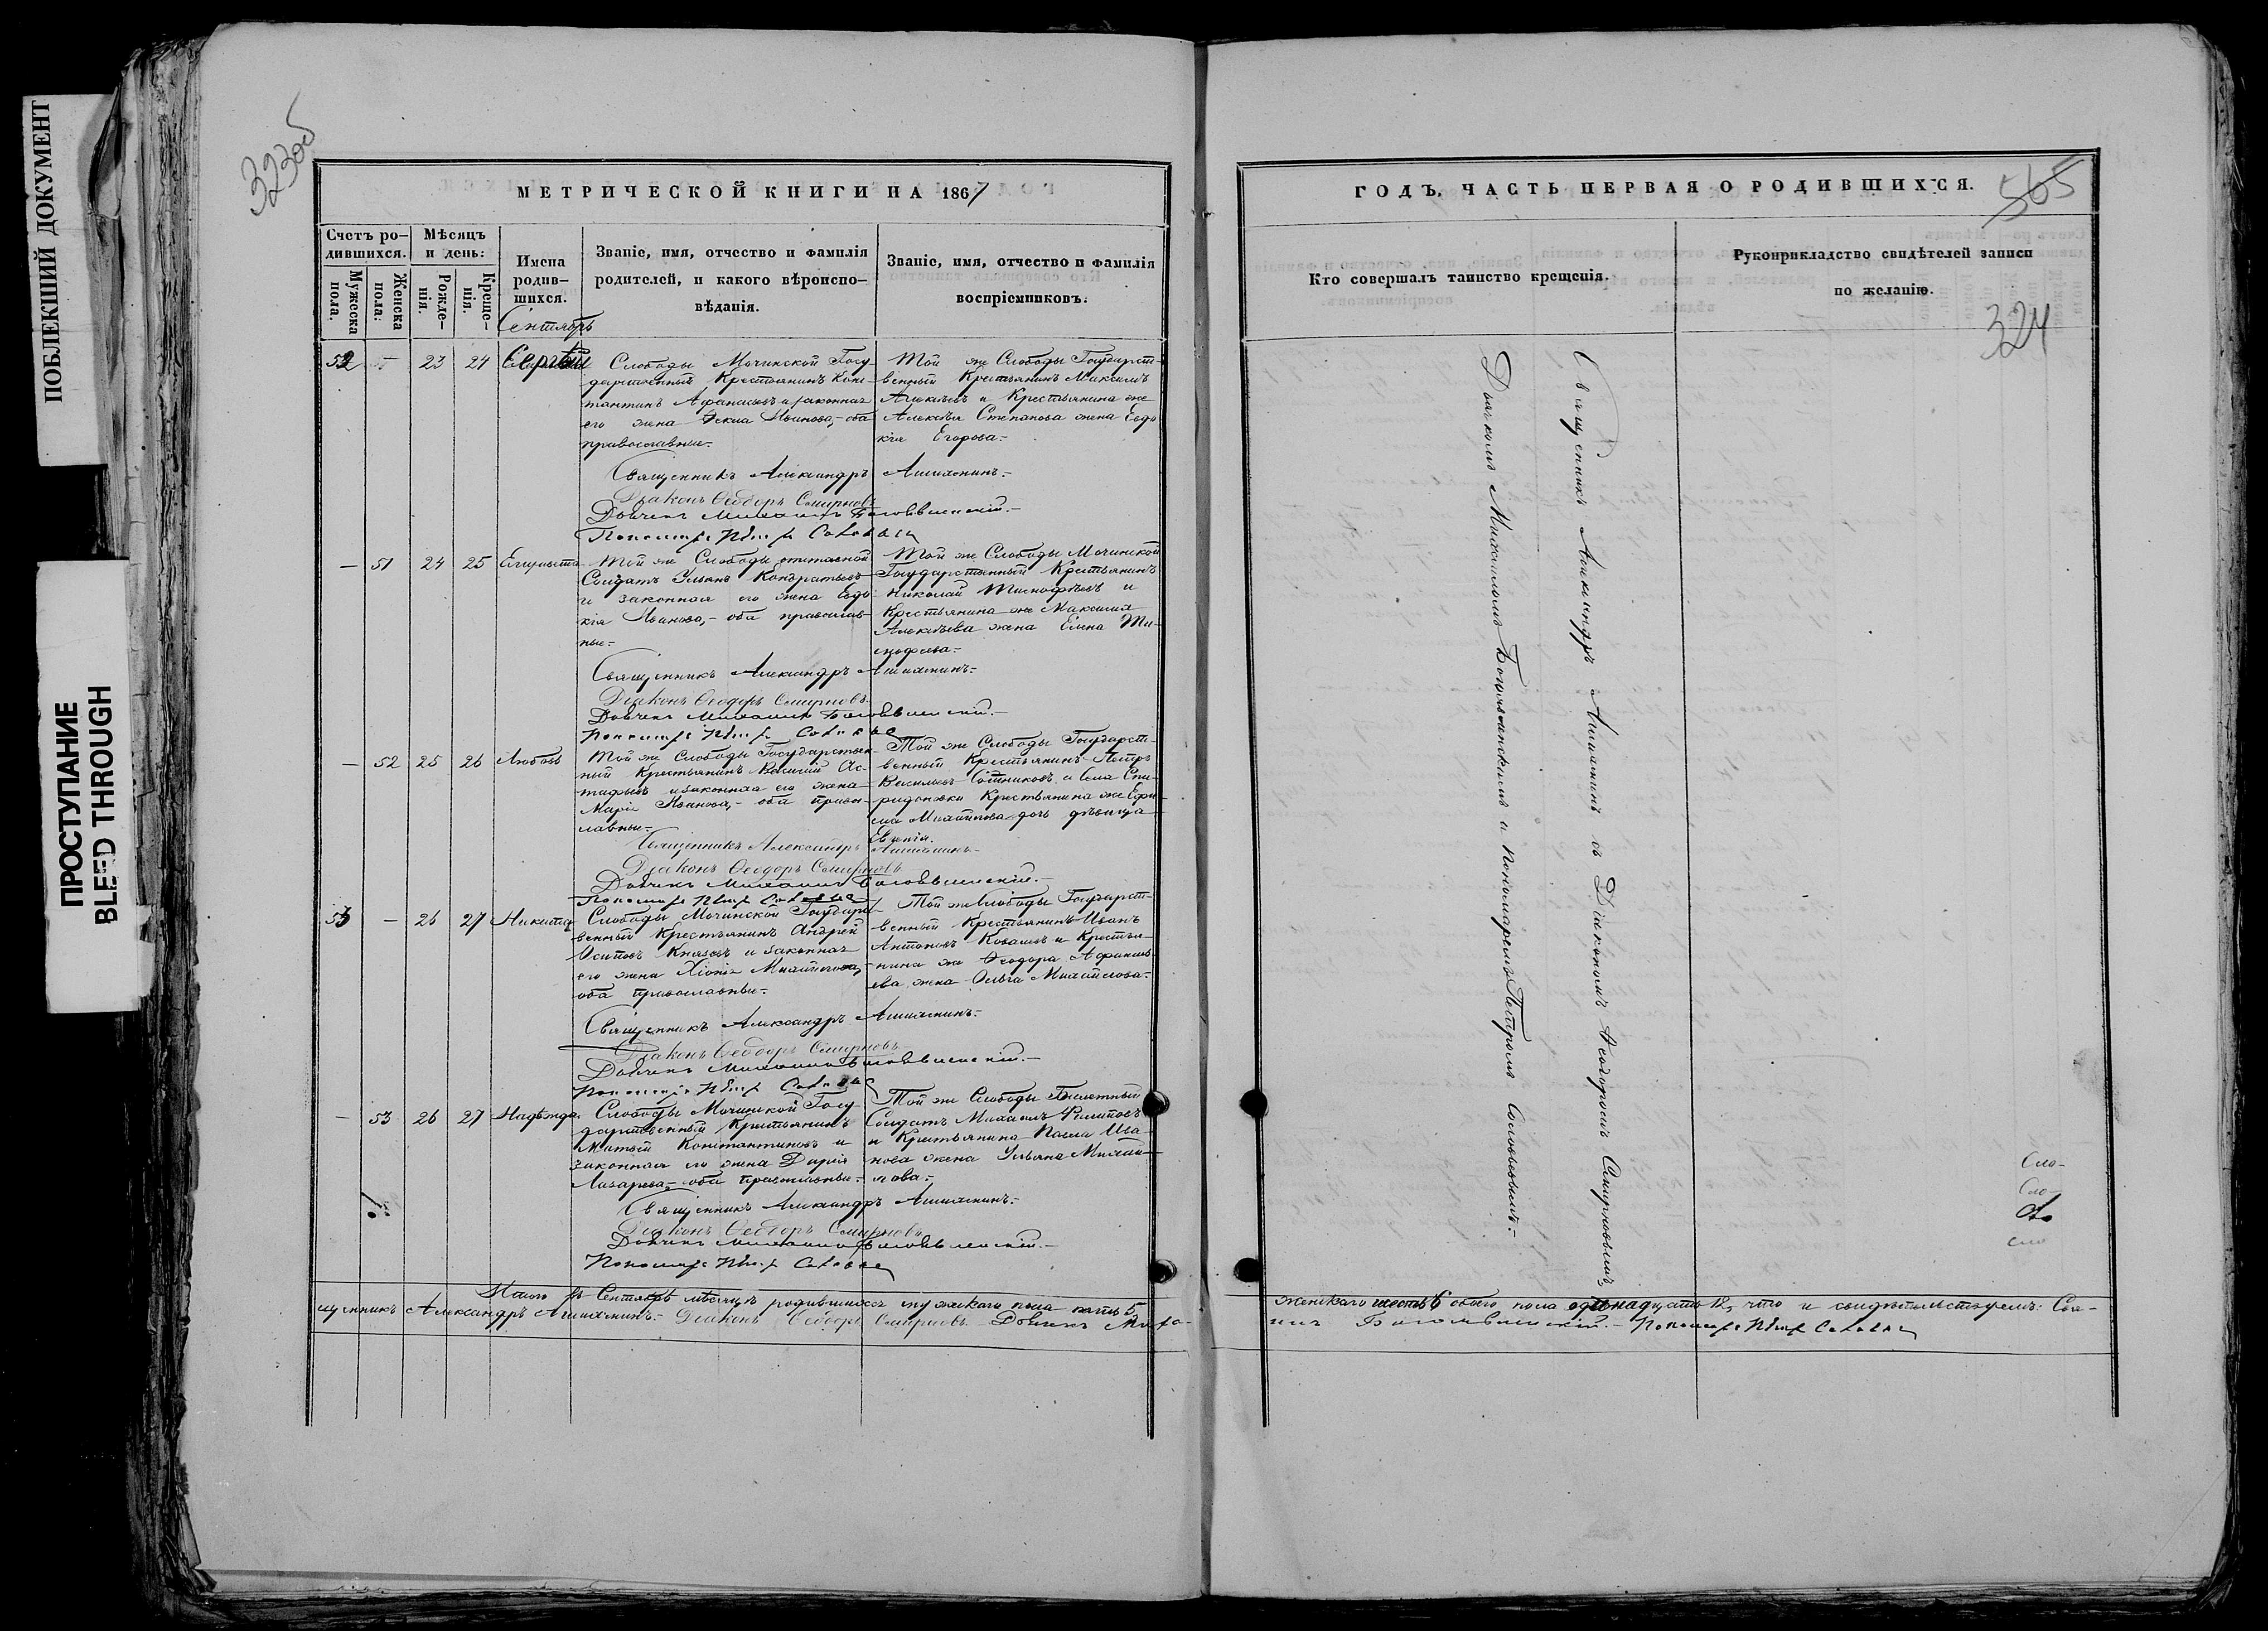 ПОБЛЕКШИЙ ДОКУМЕНТ
ПРОСТУПАНИЕ
BLEED THROUGH
323об
МЕТРИЧЕСКОЙ КНИГИ НА 1867
Счетъ ро-
дившихся.
Мужеска
пола.
Женска
пола:
Мѣсяцъ
и день:
Рожде-
нія.
Креще-
нія.
Имена
родив-
шихся.
Званіе, имя, отчество и фамилія
родителей, и какого вѣроиспо-
вѣданія.
Званіе, имя, отчество и фамилія
воспріемниковъ.
Сентябрь
52 23 24 Сергѣй
Слободы Мочинской Госу-
дарственный Крестьянинъ Конс-
тантинъ Афанасьевъ и законная
его жена Ѳекла Иванова,- оба
православные.-
Той же Слободы Государст-
венный Крестьянинъ Максимъ
Алексѣевъ и Крестьянина же
Алексѣя Степанова жена Евдо
кія Егорова.-
Священникъ Александръ
Діаконъ Ѳеодоръ Смирновъ
Дьячекъ Михаилъ Богоявленскій.-
Пономарь Петръ
— 51 24 25
Той же Слободы отставной
Солдатъ Ульянъ Кондратьевъ
и законная его жена Евдо
кія Иванова,- оба православ-
ные.-
Той же Слободы Мочинской
Государственный Крестьянинъ
Николай Тимофѣевъ и
Крестьянина же Максима
Алексѣева жена Елена Ти-
мофеева.-
Священникъ Александръ
Діаконъ Ѳеодоръ Смирновъ.
Дьячекъ Михаилъ Богоявленскій.-
Пономарь Петръ
— 52 25 26 Любовь
Той же Слободы Государствен-
ный Крестьянинъ Василій Ас-
тафьевъ и законная его жена
Марія Иванова,- оба правос-
лавные.-
Той же Слободы Государст-
венный Крестьянинъ Петръ
Васильевъ Сотниковъ и Села Спи-
ридоновки Крестьянина же Ефи-
ма Михайлова дочь дѣвица
Евгенія.
Священникъ Александръ
Діаконъ Ѳеодоръ Смирновъ
Дьячекъ Михаилъ Богоявленскій.-
Пономарь Петръ
53 — 26 27 Никита
Слободы Мочинской Государст-
венный Крестьянинъ Андрей
Осиповъ Князевъ и законная
его жена Хіонія Михайлова,
оба православные.-
Той же Слободы Государст-
венный Крестьянинъ Иванъ
Антоновъ Ковалевъ и Крестья-
нина же Ѳеодора Афанась
ева жена Ольга Михайлова.-
Священникъ Александръ
Діаконъ Ѳеодоръ Смирновъ
Дьячекъ Михаилъ Богоявленскій.-
Пономарь Петръ
— 53 26 27 Надежда
Слободы Мочинской Госу-
дарственный Крестьянинъ
Матвѣй Константиновъ и
законная его жена Дарія
Лазарева,- оба православные.-
Той же Слободы Билетный
Солдатъ Михаилъ Филиповъ
и Крестьянина Павла Ива
нова жена Ульяна Михай-
лова.-
Священникъ Александръ
Діаконъ Ѳеодоръ Смирновъ
Дьячекъ Михаилъ Богоявленскій.-
Пономарь Петръ
Итого въ Сентябрѣ мѣсяцѣ родившихся мужскаго пола пять 5,
щенникъ Александръ Діаконъ Ѳеодоръ Смирновъ Дьячекъ Миха-
ГОДЪ, ЧАСТЬ ПЕРВАЯ О РОДИВШИХСЯ.
565
Кто совершалъ таинство крещенія.
Рукоприкладство свидѣтелей записи
по желанію.
324
Священникъ Александръ съ Діакономъ Ѳеодоромъ Смирновымъ,
Дьячкомъ Михаиломъ Богоявленскимъ и Пономаремъ Петромъ
Сло-
Сло-
сло
женскаго шесть 6 обоего пола одинадцать что и свидѣтельствуемъ: Свя-
илъ Богоявленскій.- Пономарь Петръ